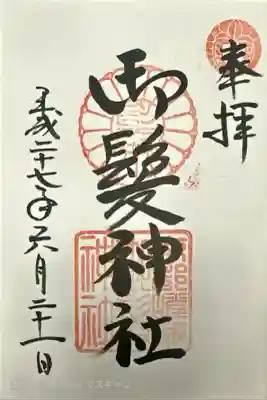 奉拝
御髪神社
平成二十七年六月二十一日